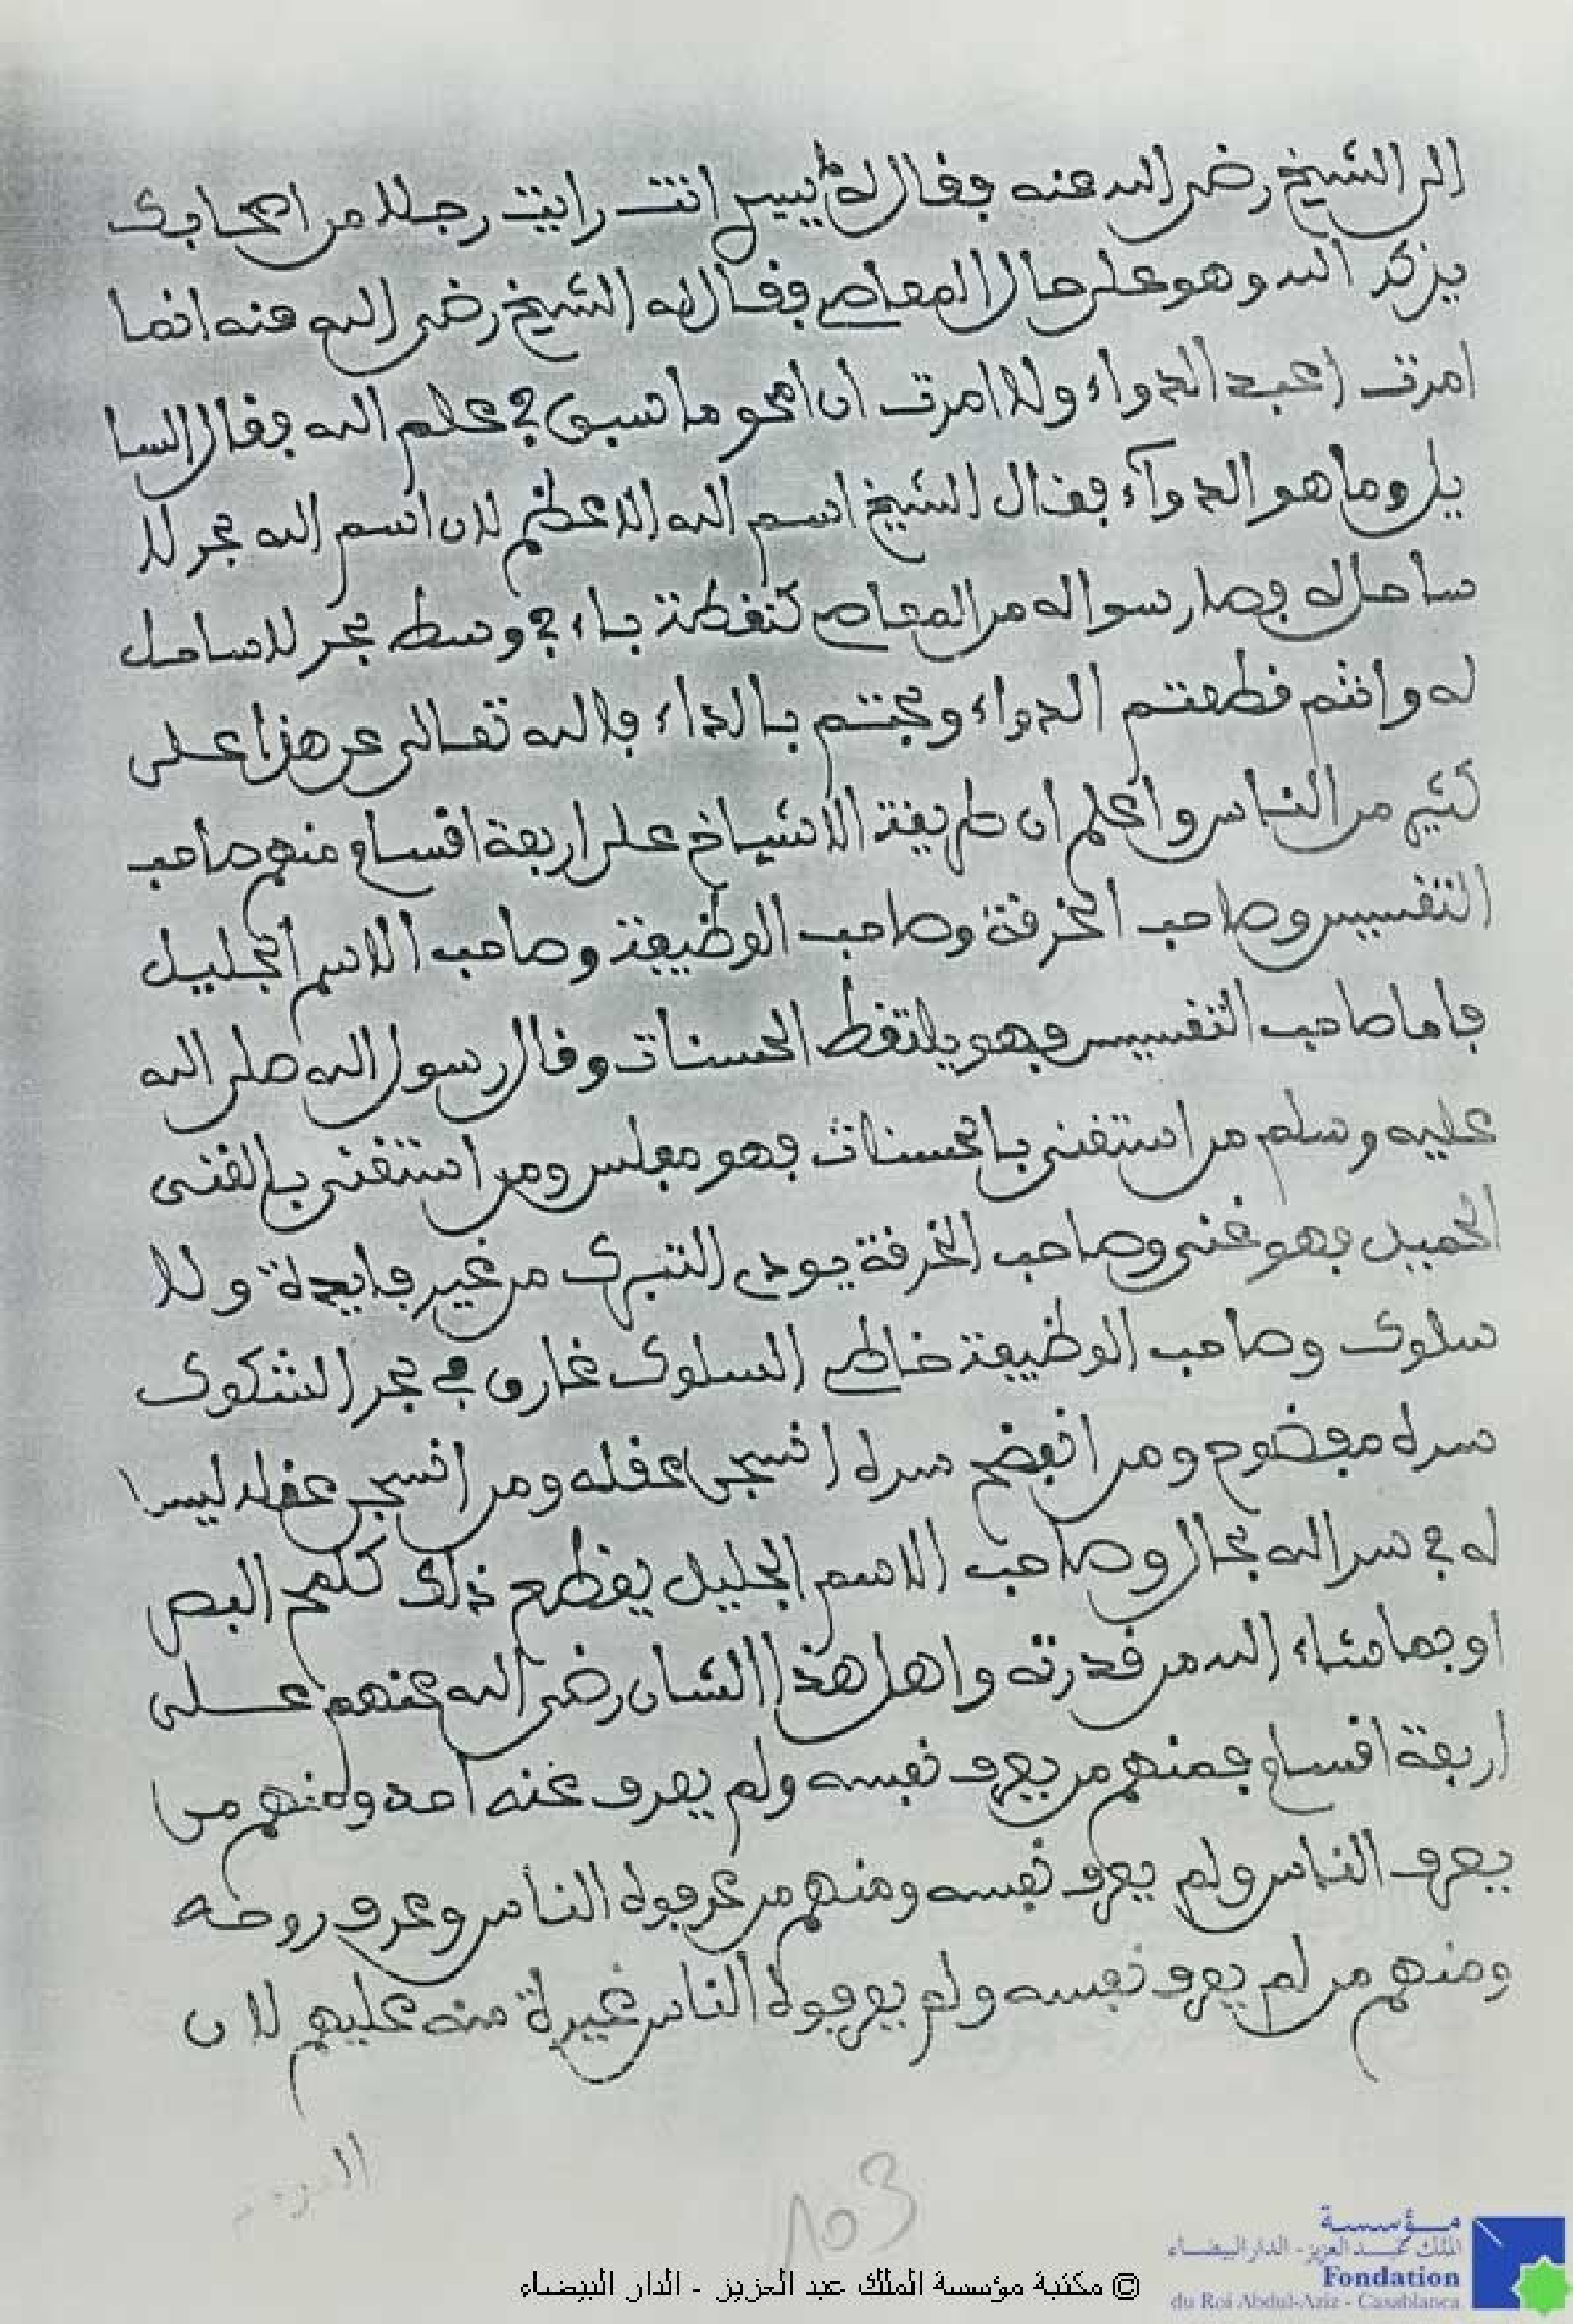 الى الشيخ رضى الله عنه فقال له يسير انت رايت رجلا من اصحابك
يزكر الله وهو على حال المعاصى فقال له الشيخ رضى الله عنه انما
امرت اعبد الدواء ولا امرت ان امحو ما سبق في علم الله فقال السا
يل وما هو الدوآء فقال الشيخ اسم الله الاعظم لان اسم الله بحر لا
ساحل له فصار سواله من المعاصى كنقطة باء في وسط بحر لا ساحل
له وانتم قطعتم الدواء وجئتم بالداء فالله تعالى عن هذا على
كثير من الناس واعلم ان طريقة الاشياخ على اربعة اقسام منهم صاحب
التقسيس وصاحب الخرقة وصاحب الوظيفة وصاحب الاسم الجليل
فاما صاحب التقسيس فهو يلتقط الحسنات وقال رسول الله صلى الله
عليه وسلم من استغنى بالحسنات فهو مفلس ومن استغنى بالغنى
الجميل فهو غنى وصاحب الخرقة يودى التبرك من غير فايدة ولا
سلوك وصاحب الوظيفة خاطى السلوك غارق في بحر الشكوك
سره مفضوح ومن انفضح سره انسجن عقله ومن انسجن عقله ليس
له في سر الله مجال وصاحب الاسم الجليل يقطع ذلك كلمح البص
او بما شاء الله من قدرته واهل هذا الشان رضى الله عنهم على
اربعة اقسام فمنهم من يعرف نفسه ولم يعرف عنه احد ومنهم من
يعرف الناس ولم يعرف نفسه ومنهم من عرفوه الناس وعرف روحه
ومنهم من لم يعرف نفسه ولم يعرفوه الناس غيرة منه عليهم لان
103
© مكتبة مؤسسة الملك عبد العزيز - الدار البيضاء
مؤسسة
الملك عبد العزيز - الدار البيضاء
Fondation
du Roi Abdul-Aziz - Casablanca